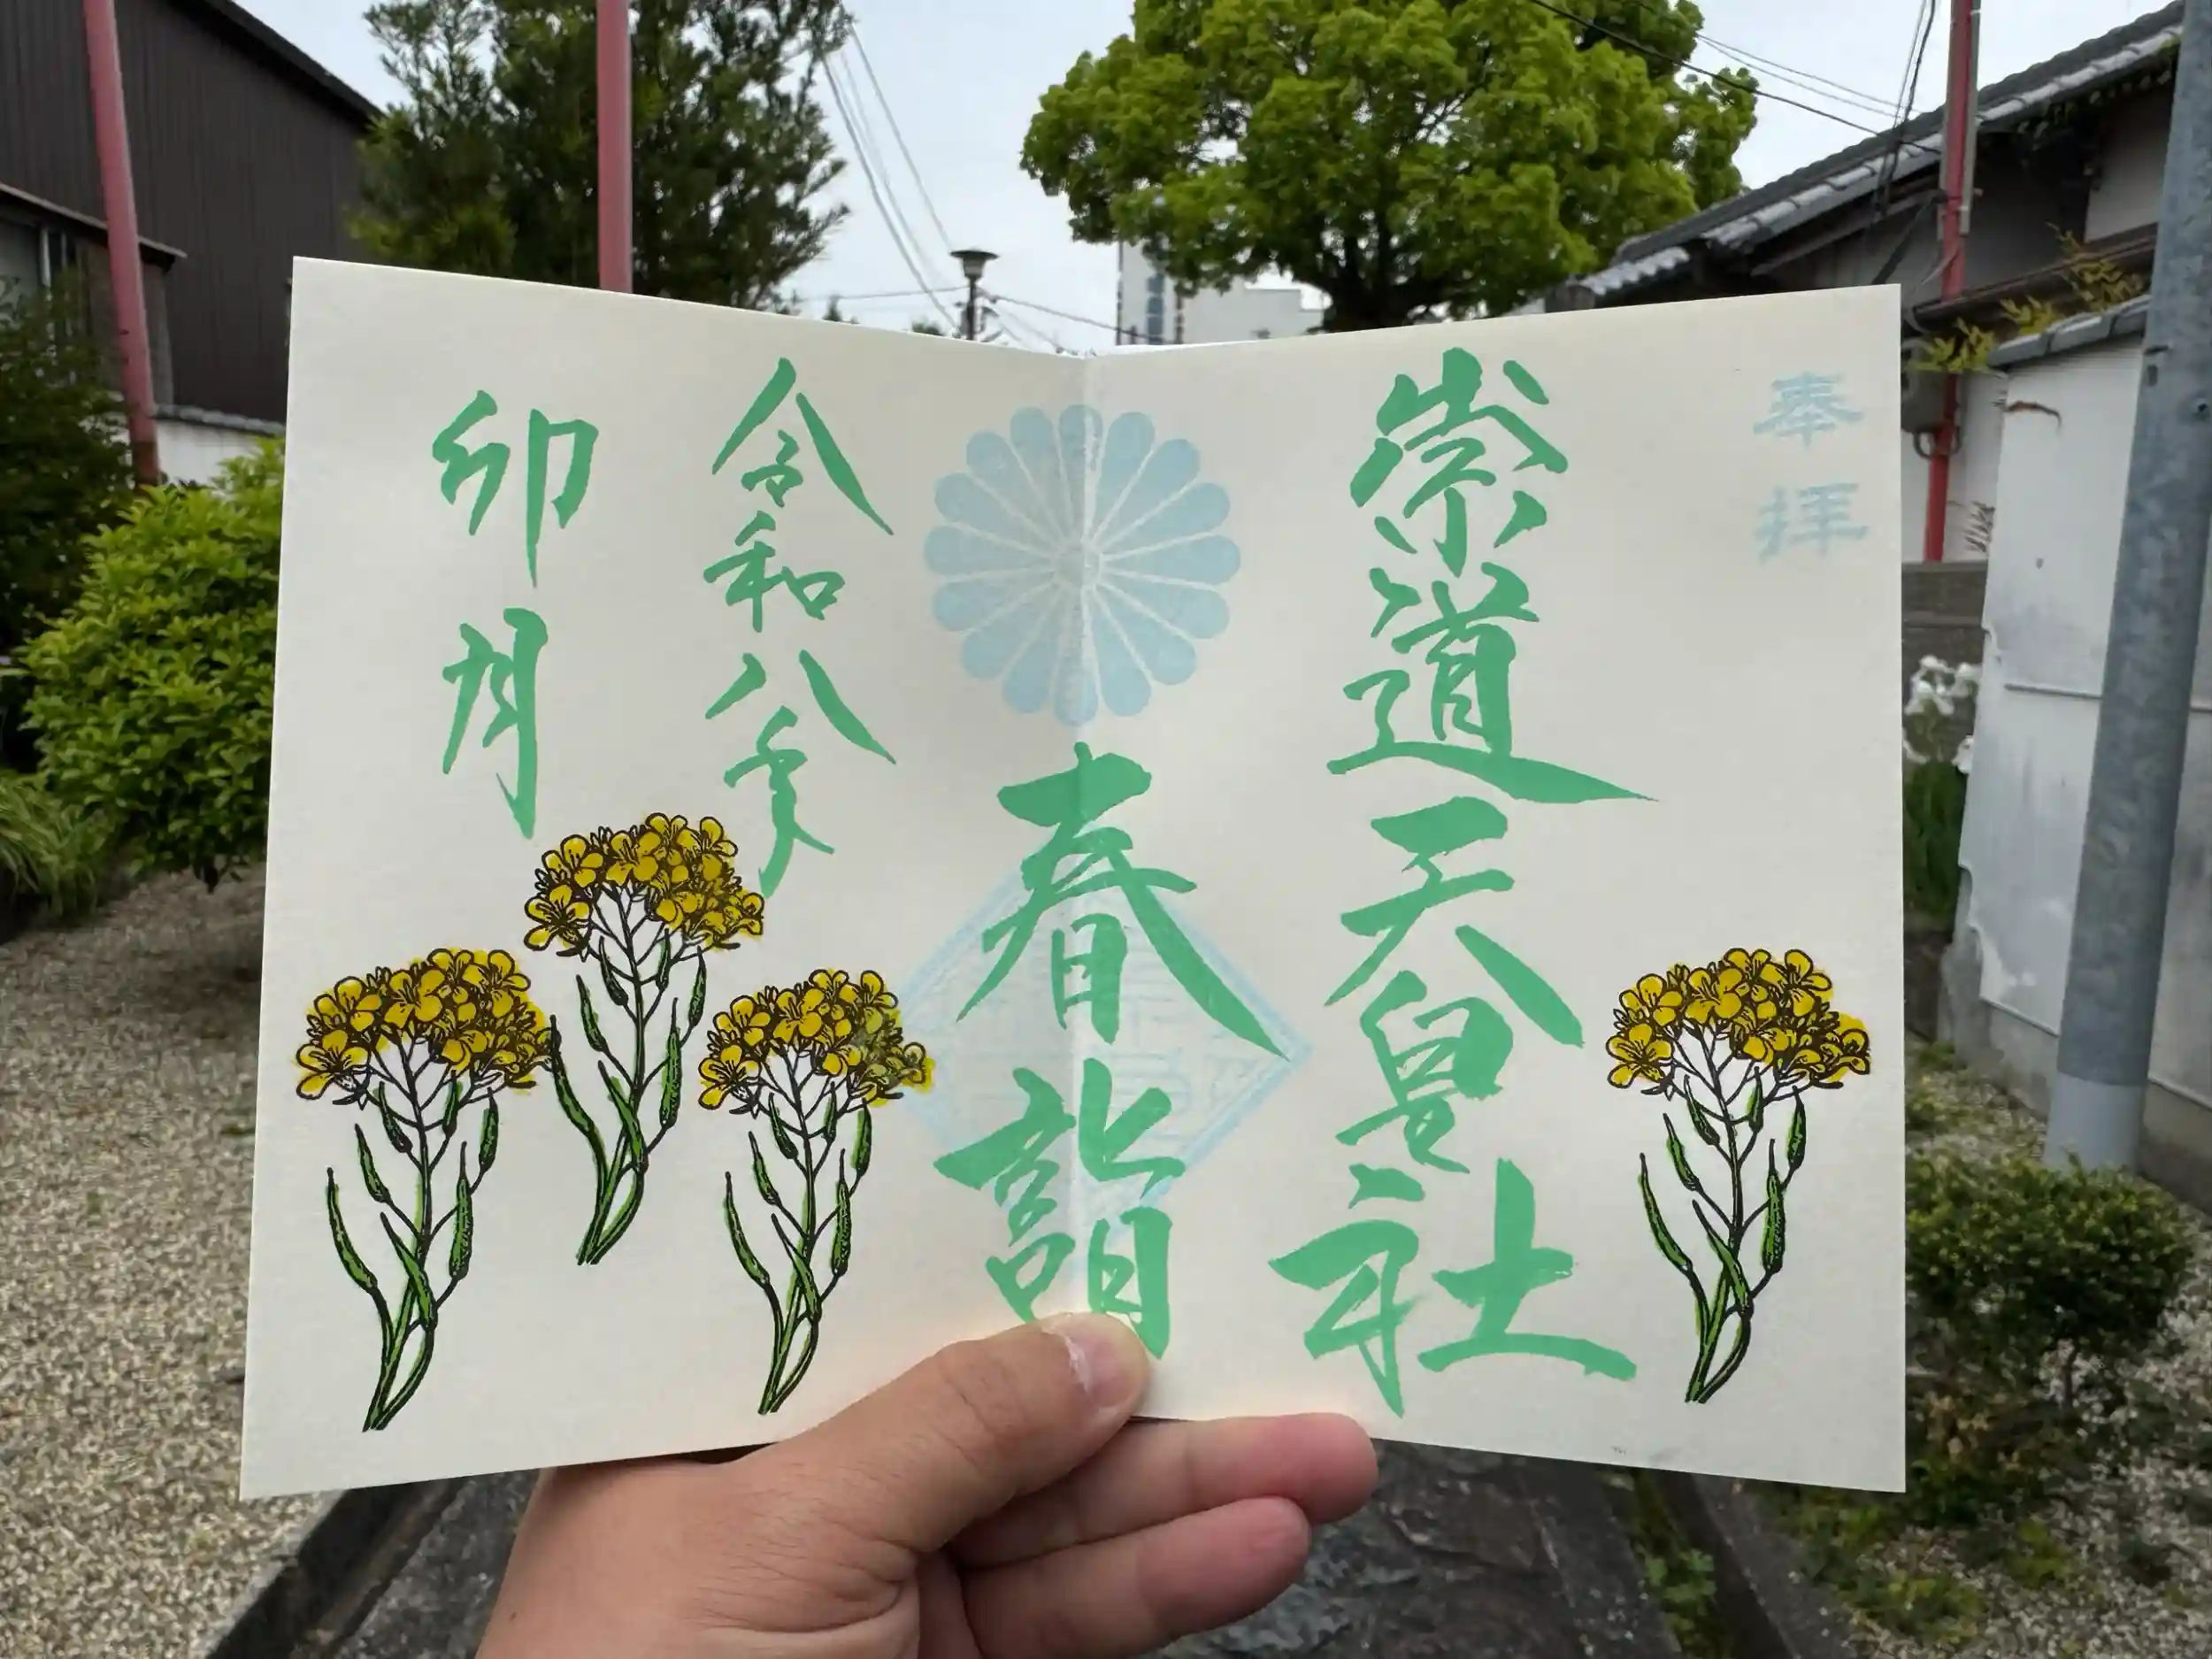 奉拝
崇道天皇社
春詣
令和八年
卯月